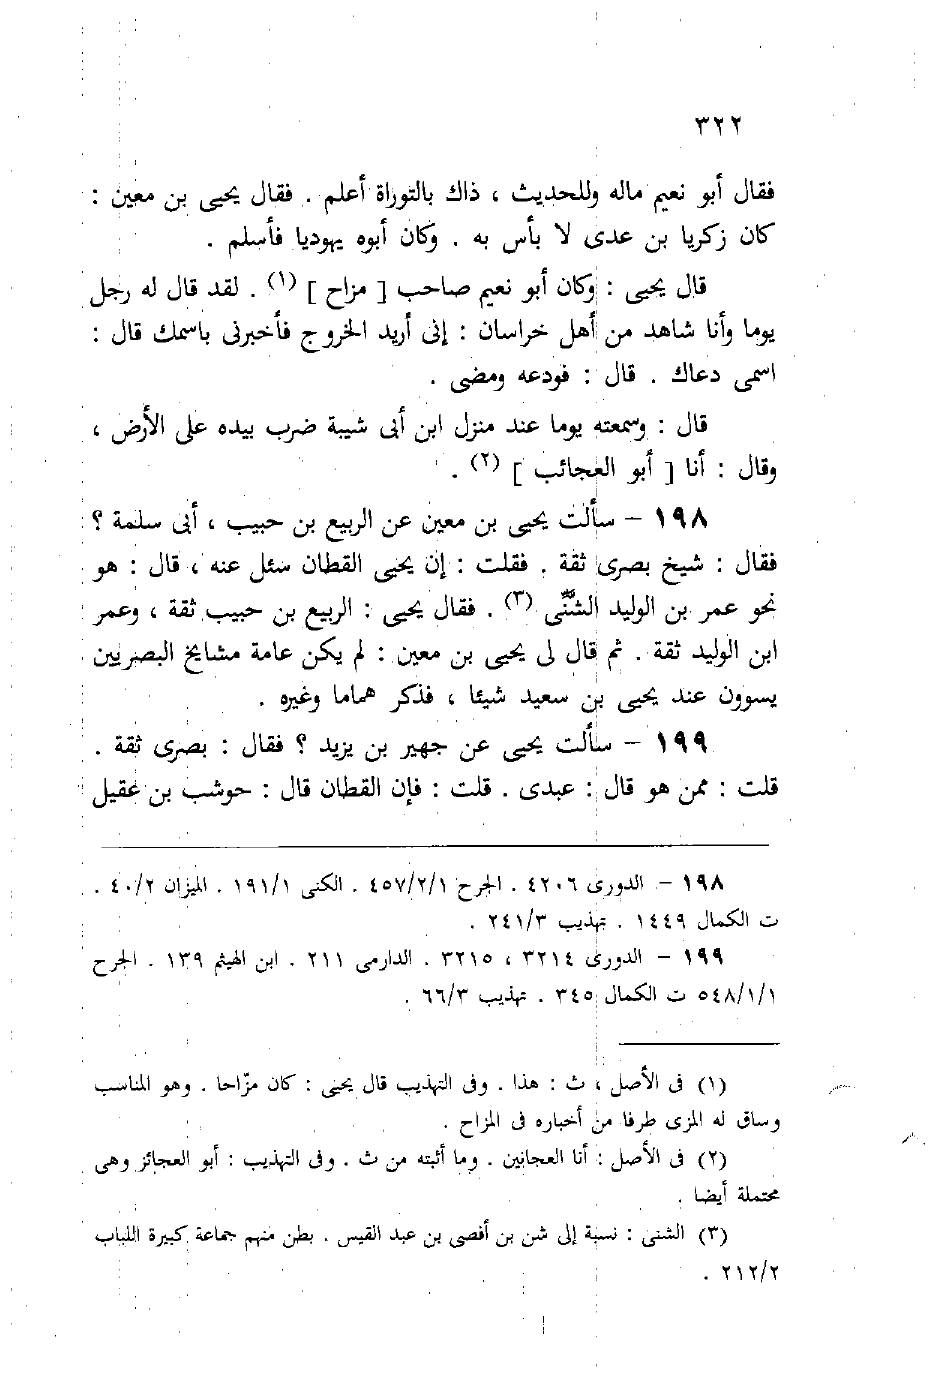 ٣٢٢
فقال أبو نعيم ماله وللحديث ، ذاك بالتوراة أعلم . فقال يحيى بن معين :
كان زكريا بن عدى لا بأس به . وكان أبوه يهوديا فأسلم .
قال يحيى : وكان أبو نعيم صاحب [ مزاح ] (١) . لقد قال له رجل
يوما وأنا شاهد من أهل خراسان : إنى أريد الخروج فأخبرنى باسمك قال :
اسمى دعاك . قال : فودعه ومضى .
قال : وسمعته يوما عند منزل ابن أبى شيبة ضرب بيده على الأرض ،
وقال : أنا [ أبو العجائب ] (٢) .
١٩٨ – سألت يحيى بن معين عن الربيع بن حبيب ، أبى سلمة ؟
فقال : شيخ بصرى ثقة . فقلت : إن يحيى القطان سئل عنه ، قال : هو
نحو عمر بن الوليد الشَّنِّى (٣) . فقال يحيى : الربيع بن حبيب ثقة ، وعمر
ابن الوليد ثقة . ثم قال لى يحيى بن معين : لم يكن عامة مشايخ البصريين
يسوون عند يحيى بن سعيد شيئا ، فذكر هماما وغيره .
١٩٩ – سألت يحيى عن جهير بن يزيد ؟ فقال : بصرى ثقة .
قلت : ممن هو قال : عبدى . قلت : فإن القطان قال : حوشب بن عقيل
١٩٨ – الدورى ٤٢٠٦ . الجرح ٤٥٧/٢/١ . الكنى ١٩١/١ . الميزان ٤٠/٢ .
ت الكمال ١٤٤٩ . تهذيب ٢٤١/٣ .
١٩٩ – الدورى ٣٢١٤ ، ٣٢١٥ . الدارمى ٢١١ . ابن الهيثم ١٣٩ . الجرح
٥٤٨/١/١ ت الكمال ٣٤٥ . تهذيب ٦٦/٣ .
(١) فى الأصل ، ث : هذا . وفى التهذيب قال يحيى : كان مزّاحا . وهو المناسب
وساق له المزى طرفا من أخباره فى المزاح .
(٢) فى الأصل : أنا العجانين . وما أثبته من ث . وفى التهذيب : أبو العجائز وهى
محتملة أيضا .
(٣) الشنى : نسبة إلى شن بن أفصى بن عبد القيس . بطن منهم جماعة كبيرة اللباب
٢١٢/٢ .